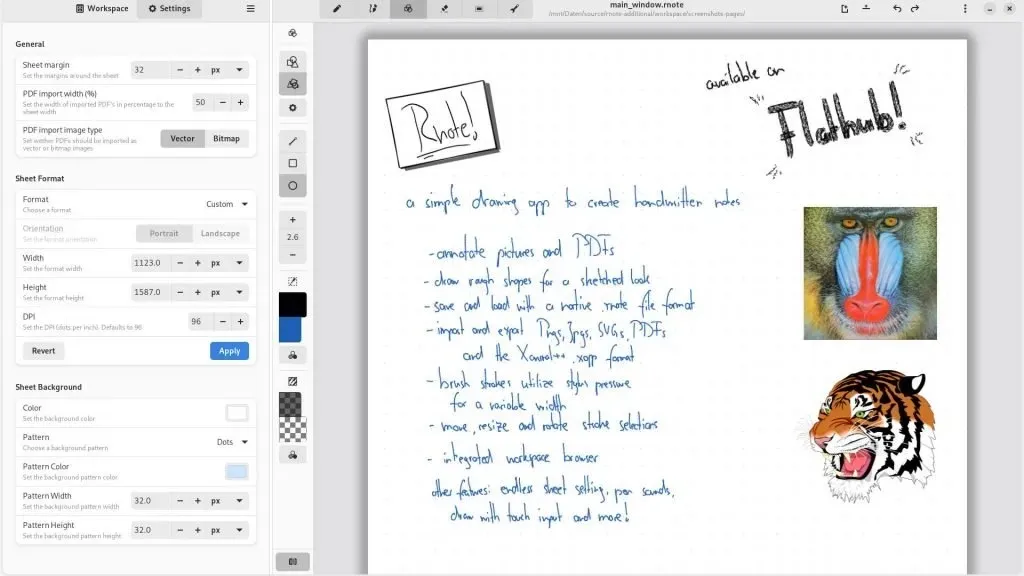 Workspace
Settings
main_window.rnote
General
Sheet margin
Set the margins around the sheet
32
px
PDF import width (%)
Set the width of imported PDF's in percentage to the
sheet width
50
PDF import image type
Set wether PDFs should be imported as
vector or bitmap images
Vector
Bitmap
Sheet Format
Format
Choose a format
Custom
Orientation
Set the format orientation
Portrait
Landscape
Width
Set the format width
1123.0
px
Height
Set the format height
1587.0
px
DPI
Set the DPI (dots per inch). Defaults to 96
96
Revert
Apply
Sheet Background
Color
Set the background color
Pattern
Choose a background pattern
Dots
Pattern Color
Set the background pattern color
Pattern Width
Set the background pattern width
32.0
px
Pattern Height
Set the background pattern height
32.0
px
2.6
Rnote!
available on
Flathub!
a simple drawing app to create handwritten notes
-annotate pictures and PDFs
- draw rough shapes for a sketched look
- save and load with a native .rnote file format
- import and export Pngs, Jpgs, SVGs, PDFs
and the Xournal++ .xopp format
- brush strokes utilize stylus pressure
for a variable width
- move, resize and rotate stroke selections
- integrated workspace browser
other features: endless sheet setting, pen sounds,
draw with touch input and more!